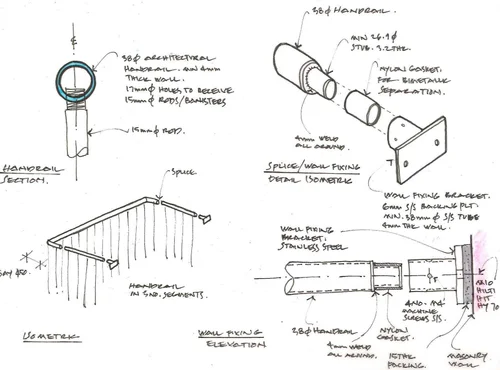 38ϕ ARCHITECTURAL
HANDRAIL. MIN 4mm
THICK WALL.
17mmϕ HOLES TO RECEIVE
15mmϕ RODS/BANISTERS
15mmϕ ROD.
HANDRAIL
SECTION.
38ϕ HANDRAIL.
MIN 26.9ϕ
STUB. 3.2THK.
NYLON GASKET.
FOR BIMETALLIC
SEPARATION.
4mm WELD
ALL AROUND.
SPLICE/WALL FIXING
DETAIL ISOMETRIC
WALL FIXING BRACKET.
6mm S/S BACKING PLT.
MIN. 38mmϕ S/S TUBE
4mm THK WALL.
SPLICE
SAY 450.
HANDRAIL
IN 3NO. SEGMENTS.
ISOMETRIC
WALL FIXING
BRACKET.
STAINLESS STEEL
38ϕ HANDRAIL
4mm WELD
ALL AROUND.
NYLON
GASKET.
4NO. M4
MACHINE
SCREWS S/S.
15THK
PACKING.
MASONRY
WALL
M10
HILTI
HIT
HY 70
WALL FIXING
ELEVATION